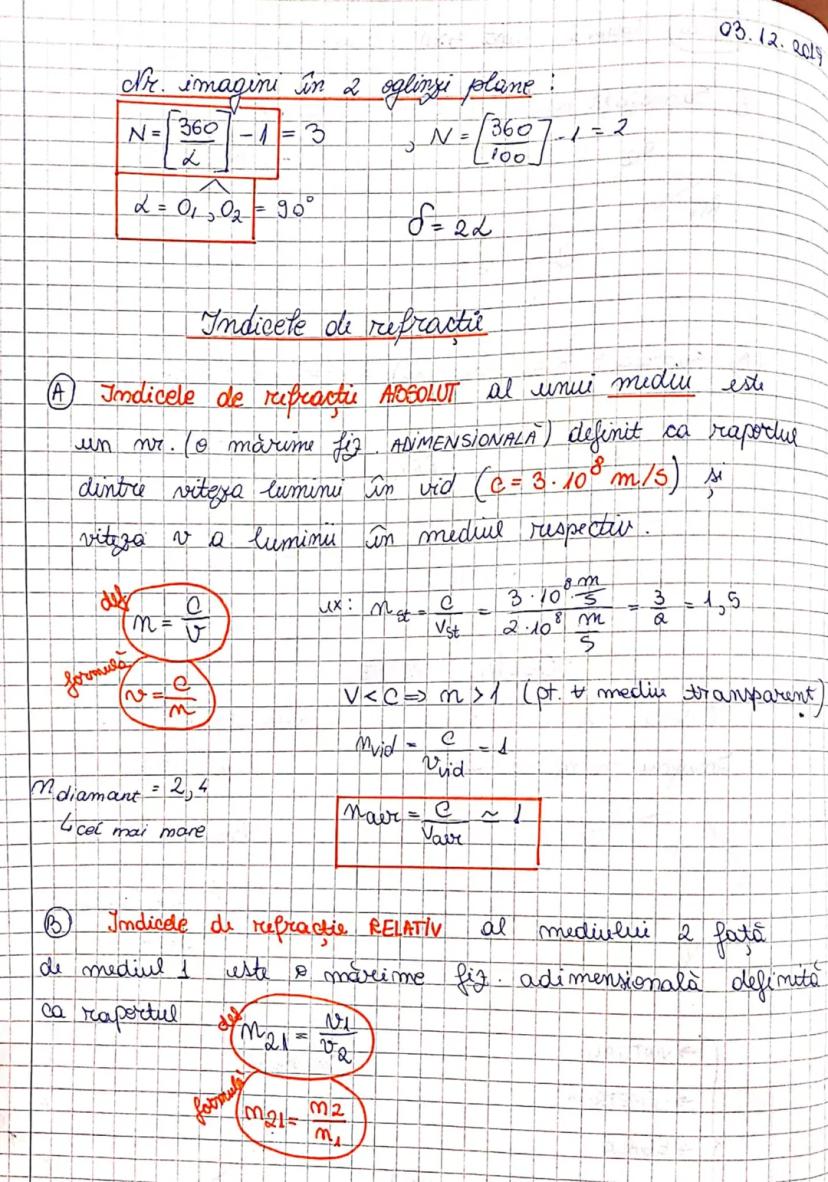 03.12.2019
Nr. imagini în 2 oglinzi plane :
N = [360/α] - 1 = 3 , N = [360/100] - 1 = 2
α = O₁,O₂ = 90° δ = 2α
Indicele de refracție
(A) Indicele de refracție ABSOLUT al unui mediu este
un nr. (o mărime fiz. ADIMENSIONALĂ) definit ca raportul
dintre viteza luminii în vid (c = 3·10⁸ m/s) și
viteza v a luminii în mediul respectiv.
def n = c/v ex: n_st = c/v_st = (3·10⁸ m/s)/(2·10⁸ m/s) = 3/2 = 1,5
formulă v = c/n v < c ⇒ n > 1 (pt. ∀ mediu transparent)
n_vid = c/v_vid = 1
n_diamant = 2,4
↳ cel mai mare
n_aer = c/v_aer ≃ 1
(B) Indicele de refracție RELATIV al mediului 2 față
de mediul 1 este o mărime fiz. adimensională definită
ca raportul def n₂₁ = v₁/v₂
formulă n₂₁ = n₂/n₁